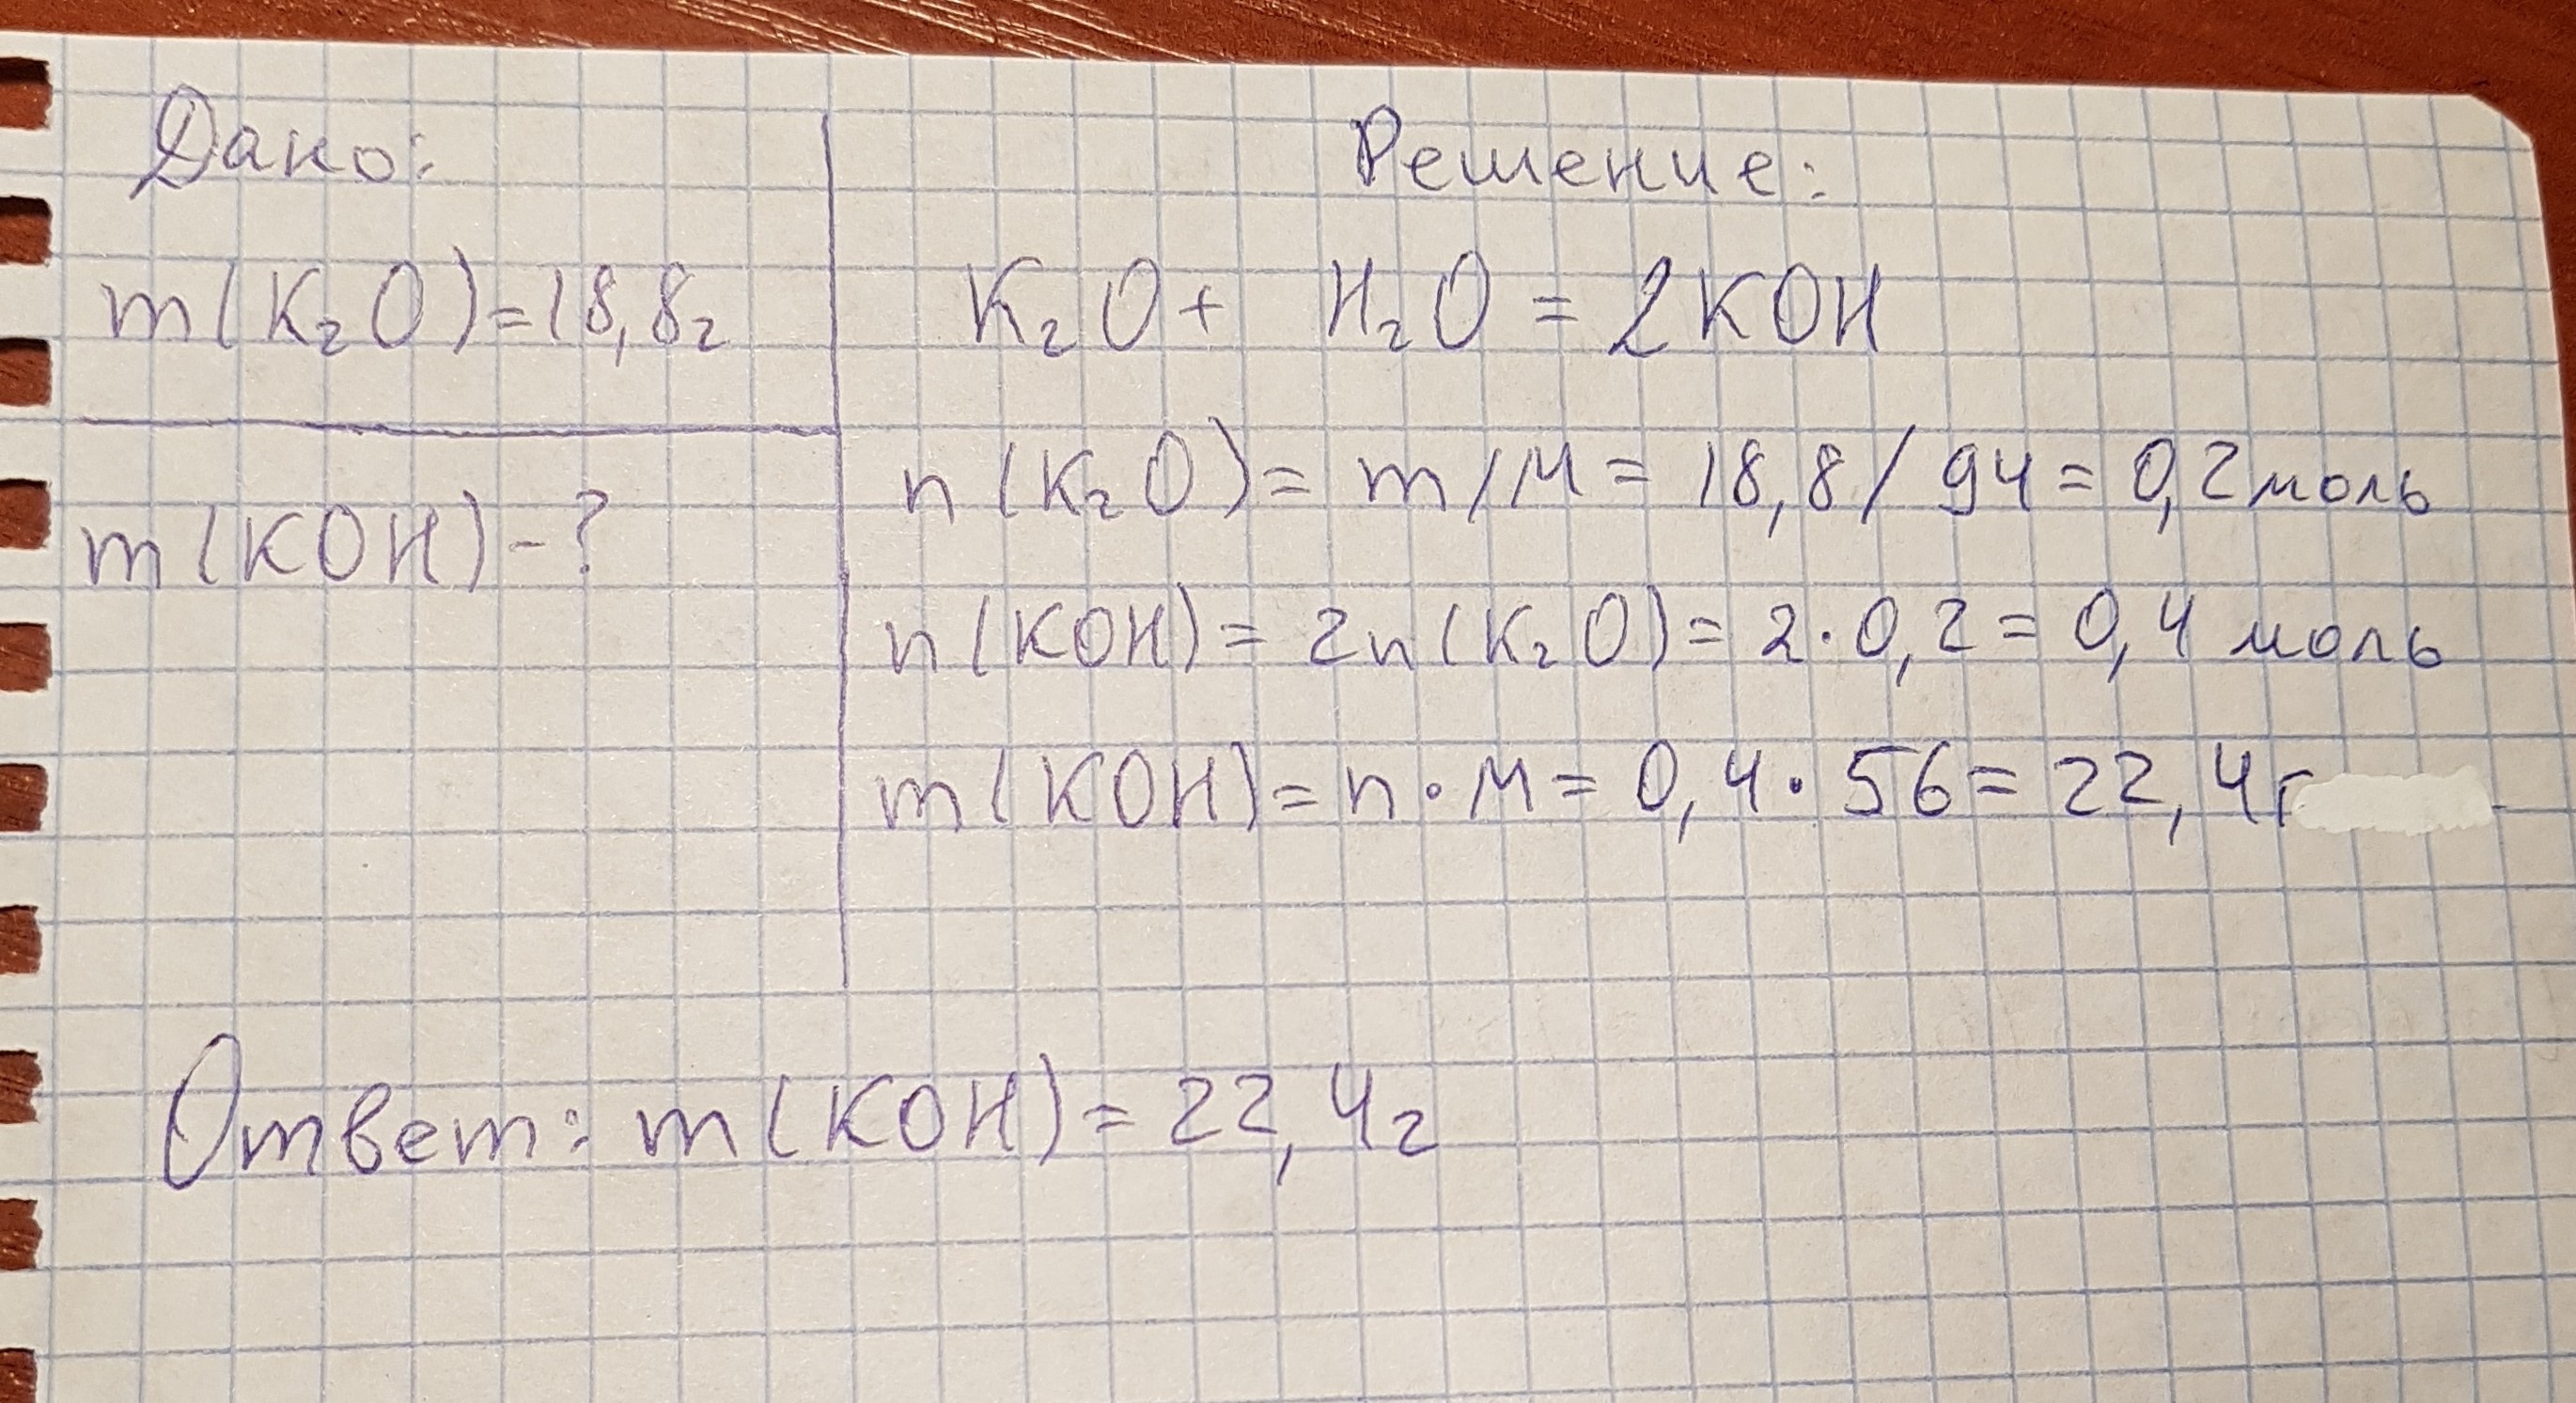 Дано:
m(K₂O)=18,8г
m(KOH)-?
Решение:
K₂O+ H₂O = 2KOH
n(K₂O)= m/M= 18,8/94= 0,2моль
n(KOH)= 2n(K₂O)= 2·0,2= 0,4 моль
m(KOH)= n·M= 0,4·56= 22,4г
Ответ: m(KOH)= 22,4г